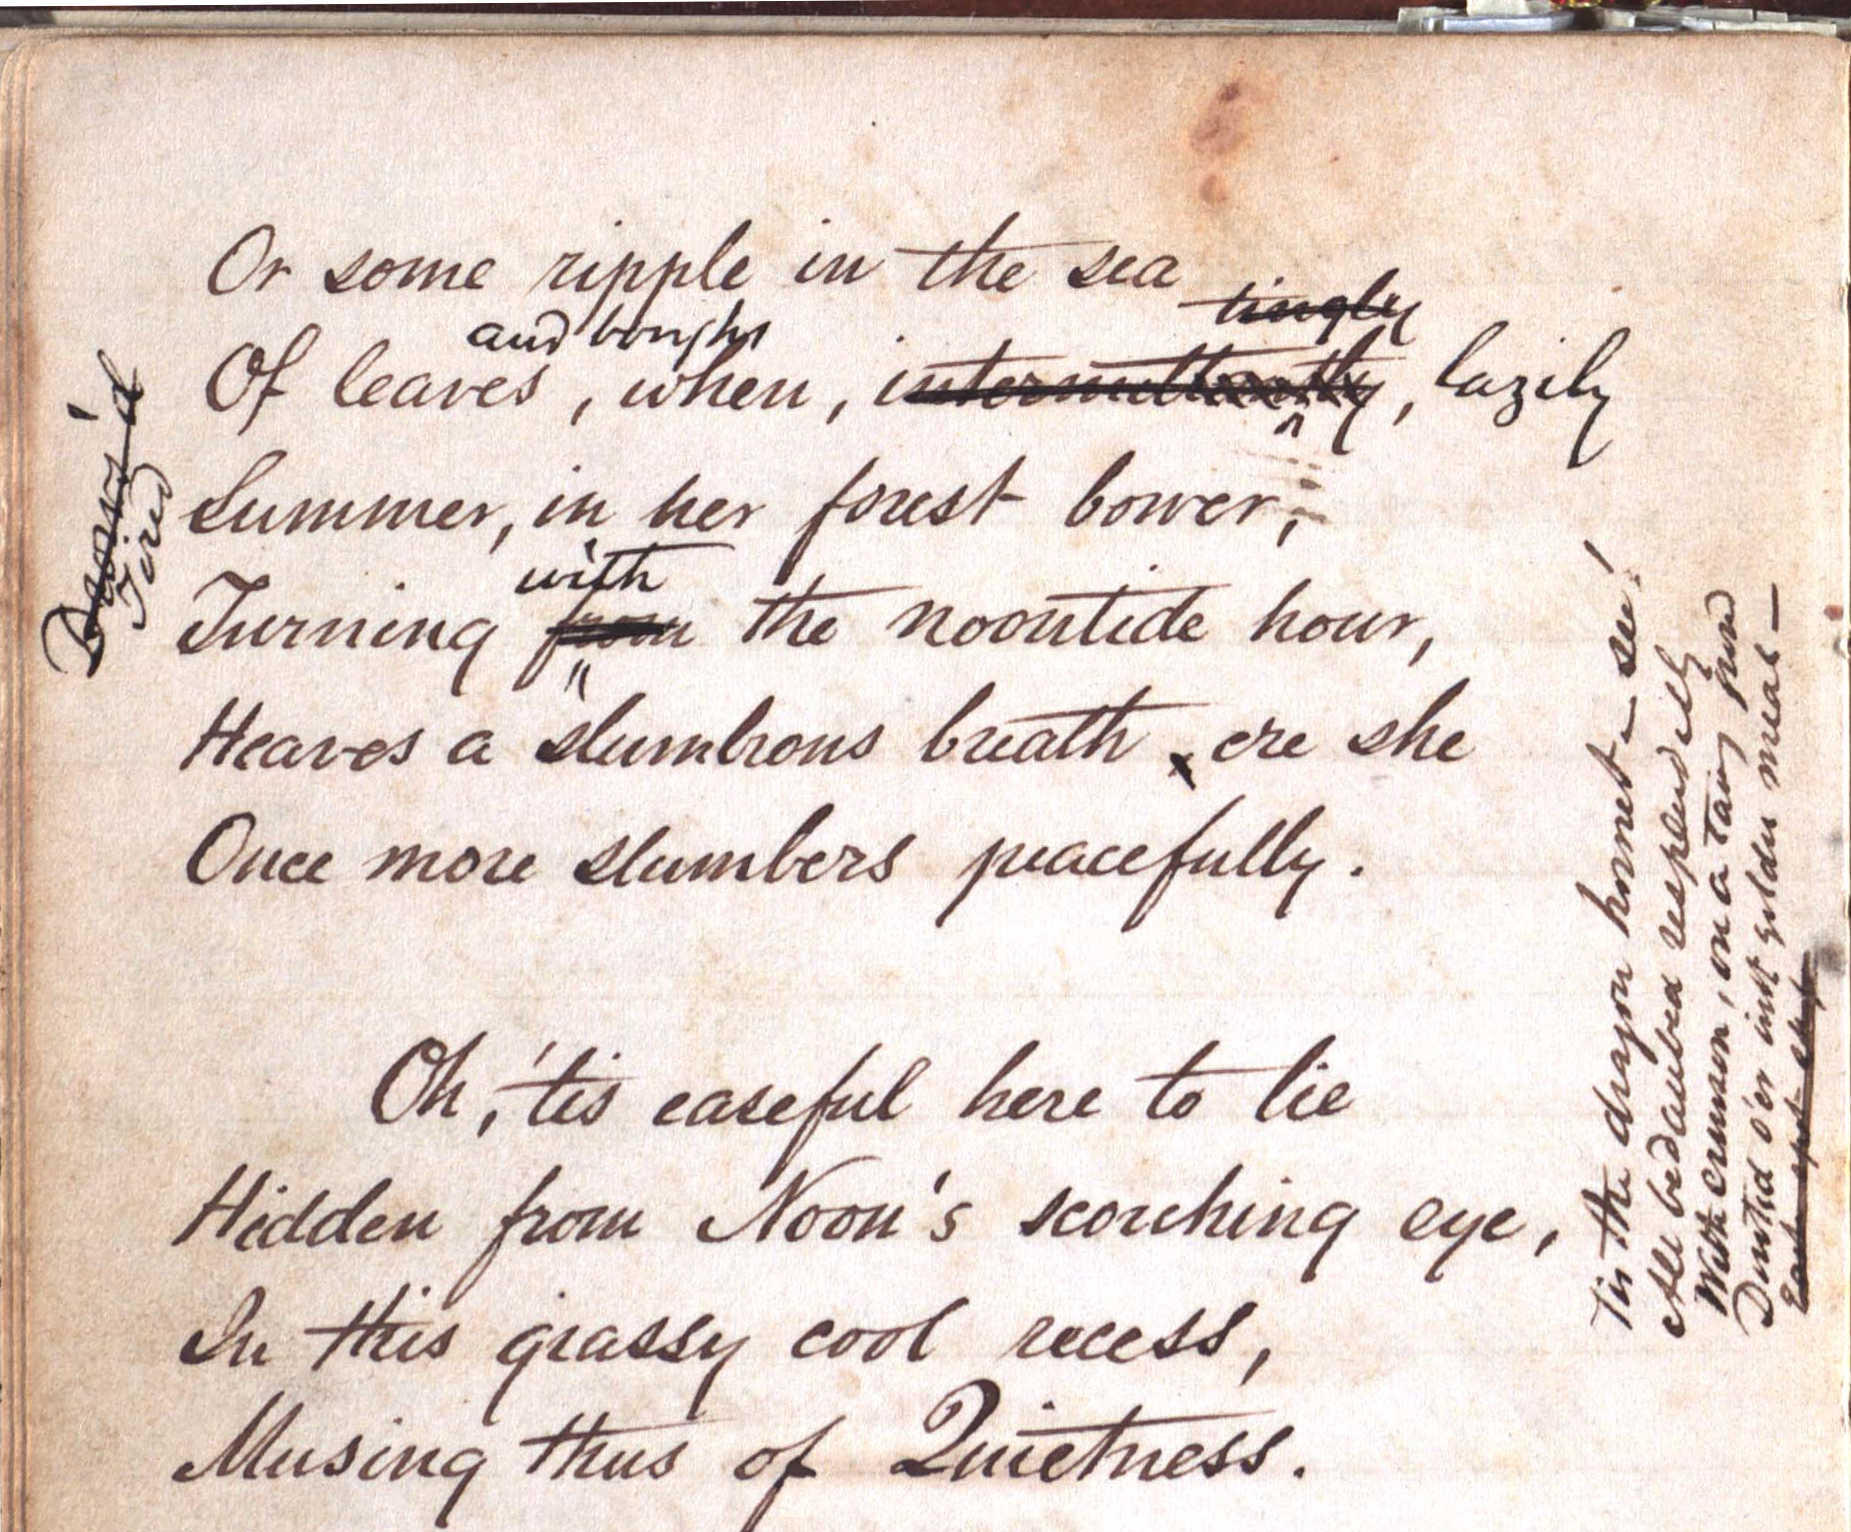 Or some ripple in the sea
tingly
and boughs
Of leaves, when, intermittently, lazily
Summer, in her forest bower,
with
Turning from the noontide hour,
Heaves a slumbrous breath, ere she
Once more slumbers peacefully.
Oh, 'tis easeful here to lie
Hidden from Noon's scorching eye,
In this grassy cool recess,
Musing thus of Quietness.
Drows'd
Tired
'Tis the dragon hornet — see!
All bedaubed resplendently
With crimson, on a tawny
Dotted o'er